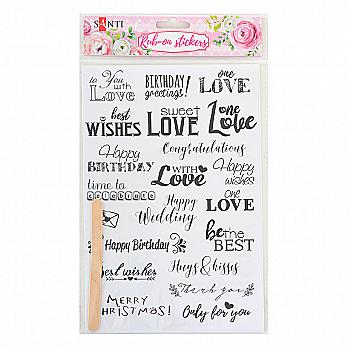 SANTI
Rub-on stickers
to You
with
Love
BIRTHDAY
greetings!
one
LOVE
best
WISHES
sweet
LOVE
One
Love
Congratulations
Happy
BIRTHDAY
WITH
Love
Happy
wishes
time to
celebrate
Happy
Wedding
one
LOVE
be the
BEST
Happy Birthday
best wishes
Hugs & kisses
Thank you
MERRY
CHRISTMAS!
Only for you